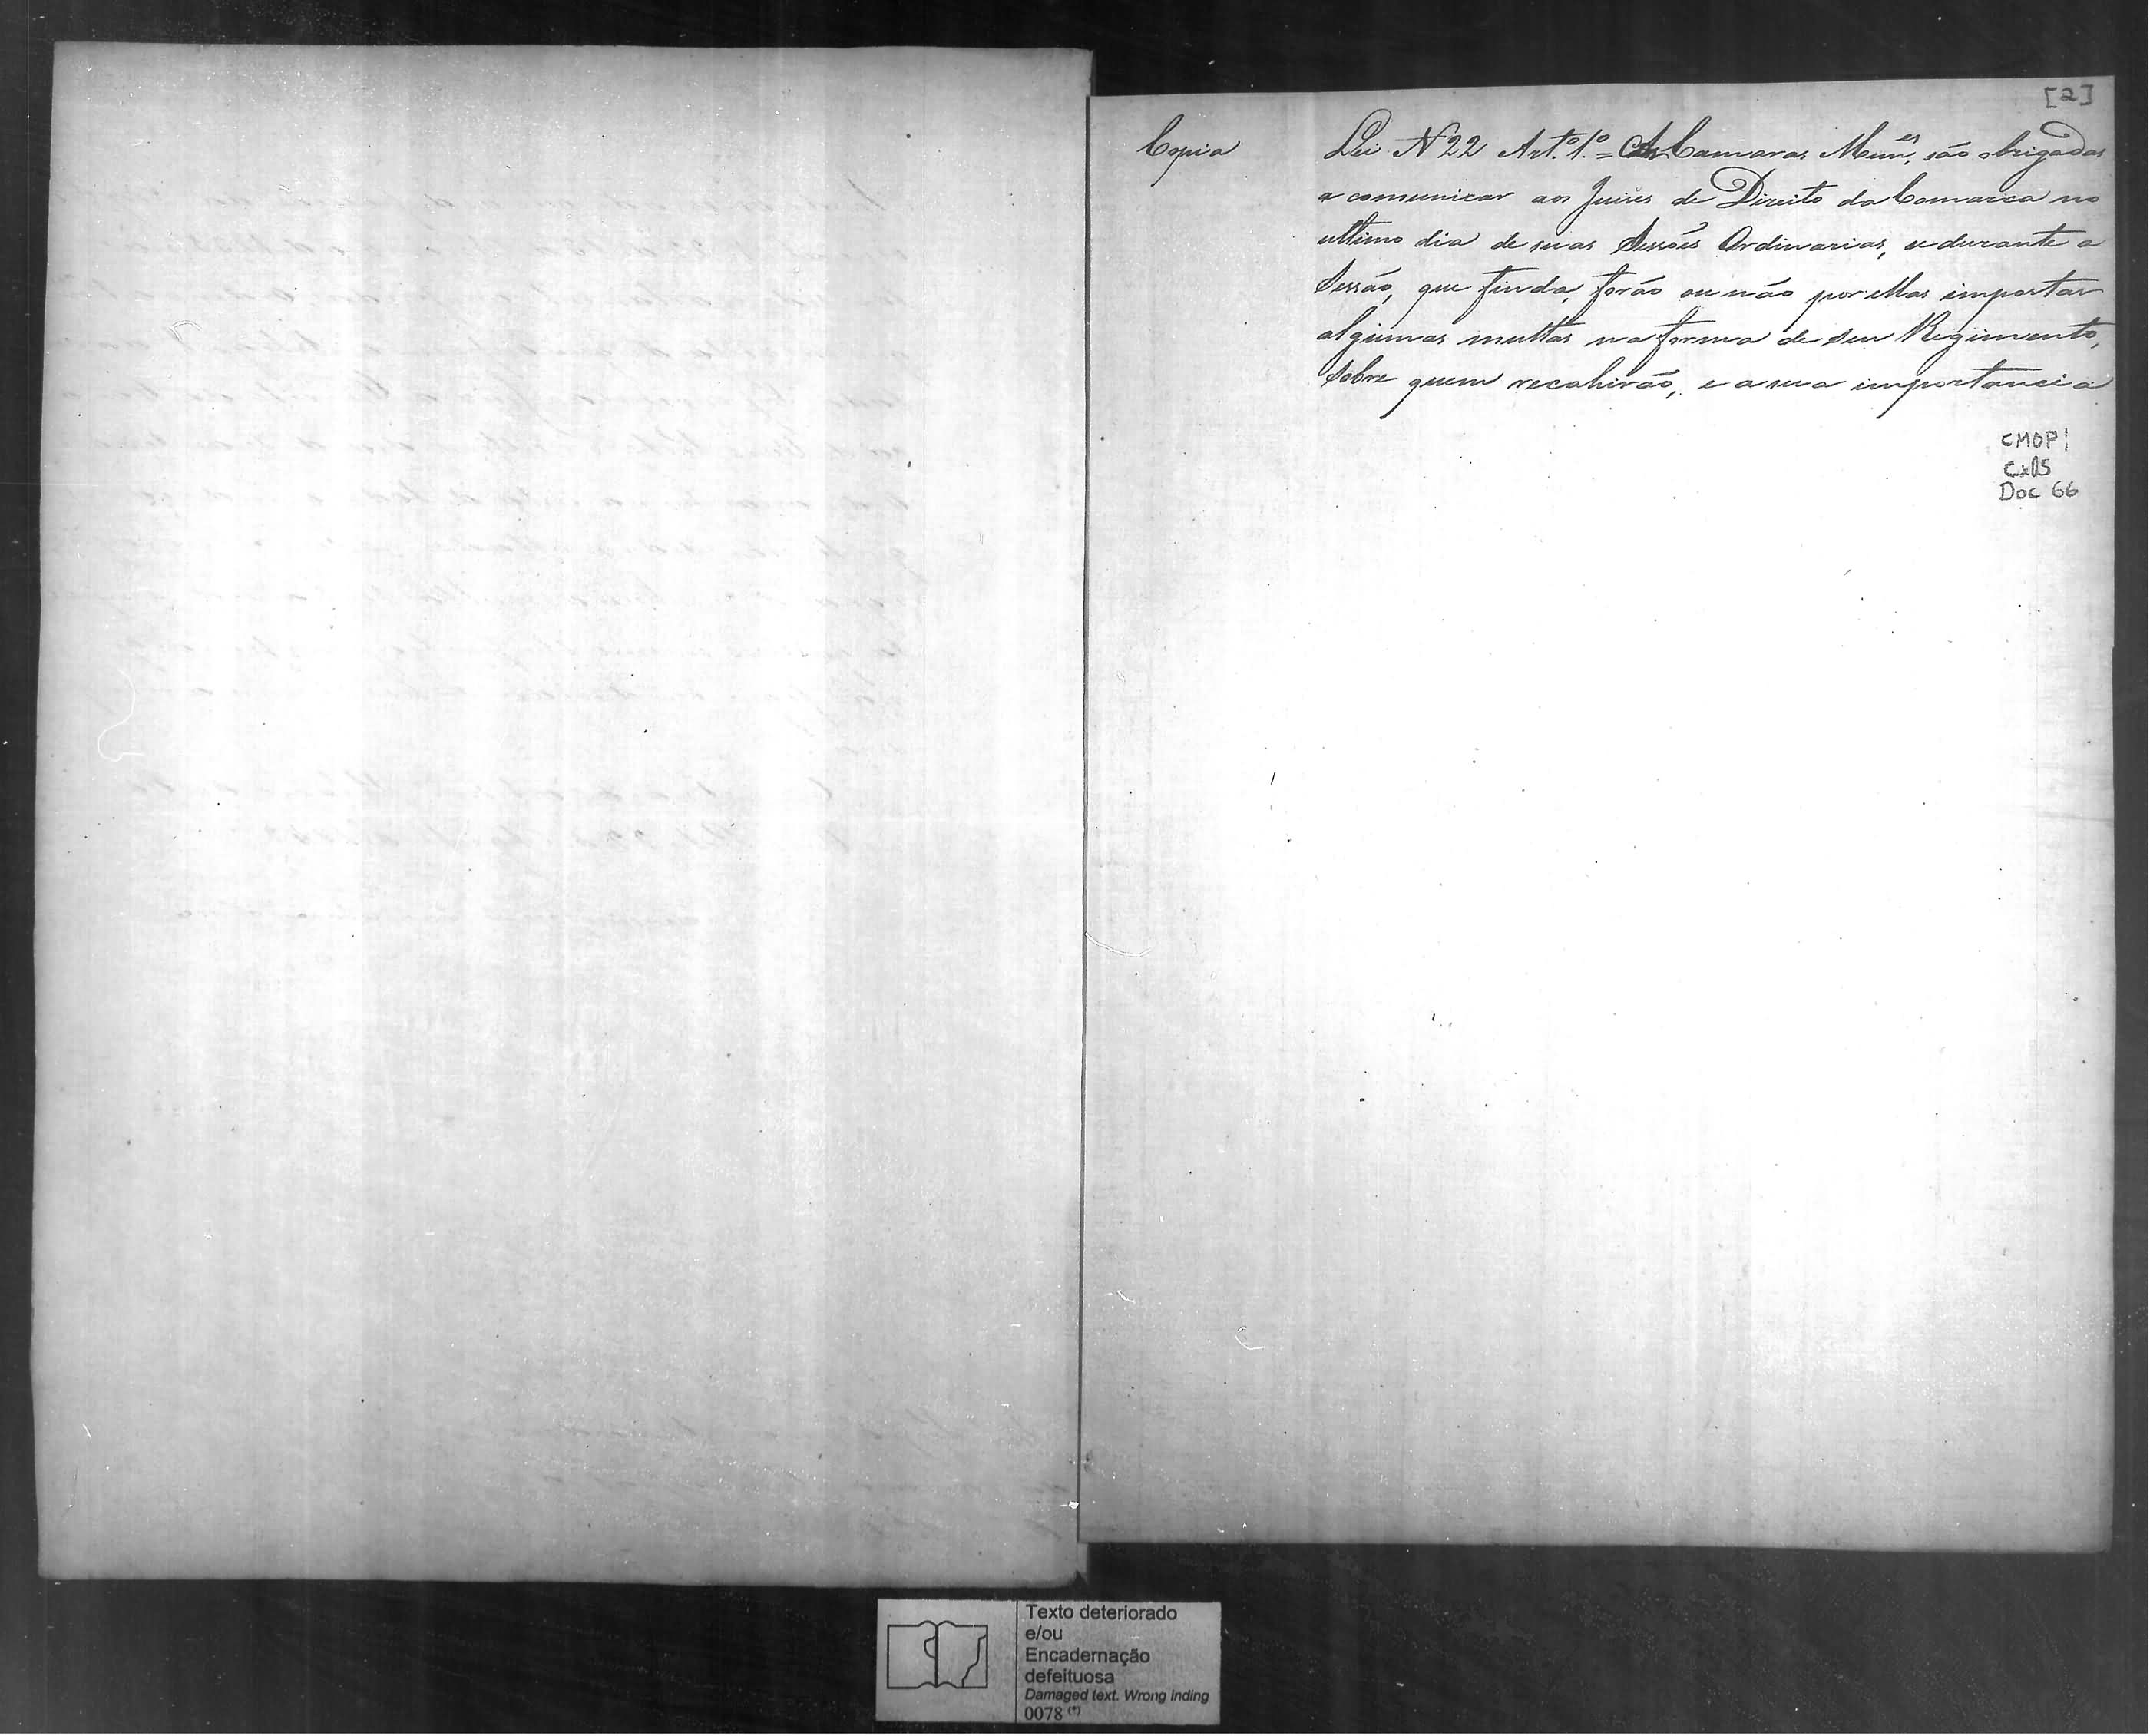 [2]
Copia
Lei N 22 Art.º 1.º = As Camaras Mun.es são obrigadas
a comunicar aos Juises de Direito da Comarca no
ultimo dia de suas Sessões Ordinarias, se durante a
Sessão, que finda, forão ou não por ellas impostas
algumas multas na forma de seu Regimento,
sobre quem recahirão, e a sua importancia
CMOP
Cx 05
Doc 66
Texto deteriorado
e/ou
Encadernação
defeituosa
Damaged text. Wrong inding
0078 (*)